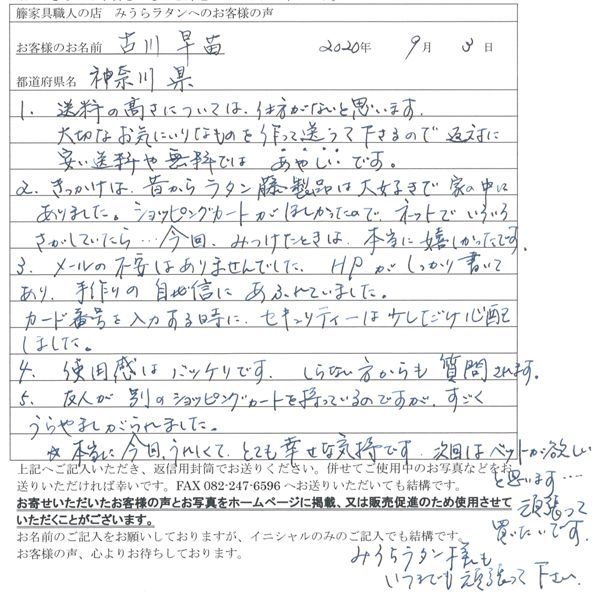 籐家具職人の店　みうらラタンへのお客様の声
お客様のお名前　古川 早苗　2020年 9月 3日
都道府県名　神奈川県
1. 送料の高さについては、仕方がないと思います。
大切なお気にいりなものを作って送って下さるので 返対に
安い送料や無料では あやしいです。
2. きっかけは、昔から ラタン藤製品は大好きで 家の中に
ありました。ショッピングカートがほしかったので、ネットでいろいろ
さがしていたら…今回、みつけたときは、本当に嬉しかったです。
3. メールの不安はありませんでした、HPがしっかり書いて
あり、手作りの自信にあふれていました。
カード番号を入力する時に、セキュリティーは少しだけ心配
しました。
4. 使用感はバッチリです。しらない方からも質問されます。
5. 友人が別のショッピングカートを持っているのですが、すごく
うらやましがられました。
☆本当に今回、うれしくて、とても幸せな気持です、次回はベットが欲しい
と思います….
頑張って
買いたいです。
上記へご記入いただき、返信用封筒でお送りください。併せてご使用中のお写真などをお
送りいただければ幸いです。FAX 082-247-6596 へお送りいただいても結構です。
お寄せいただいたお客様の声とお写真をホームページに掲載、又は販売促進のため使用させて
いただくことがございます。
お名前のご記入をお願いしておりますが、イニシャルのみのご記入でも結構です。
お客様の声、心よりお待ちしております。
みうらラタン様も
いつまでも頑張って下さい。